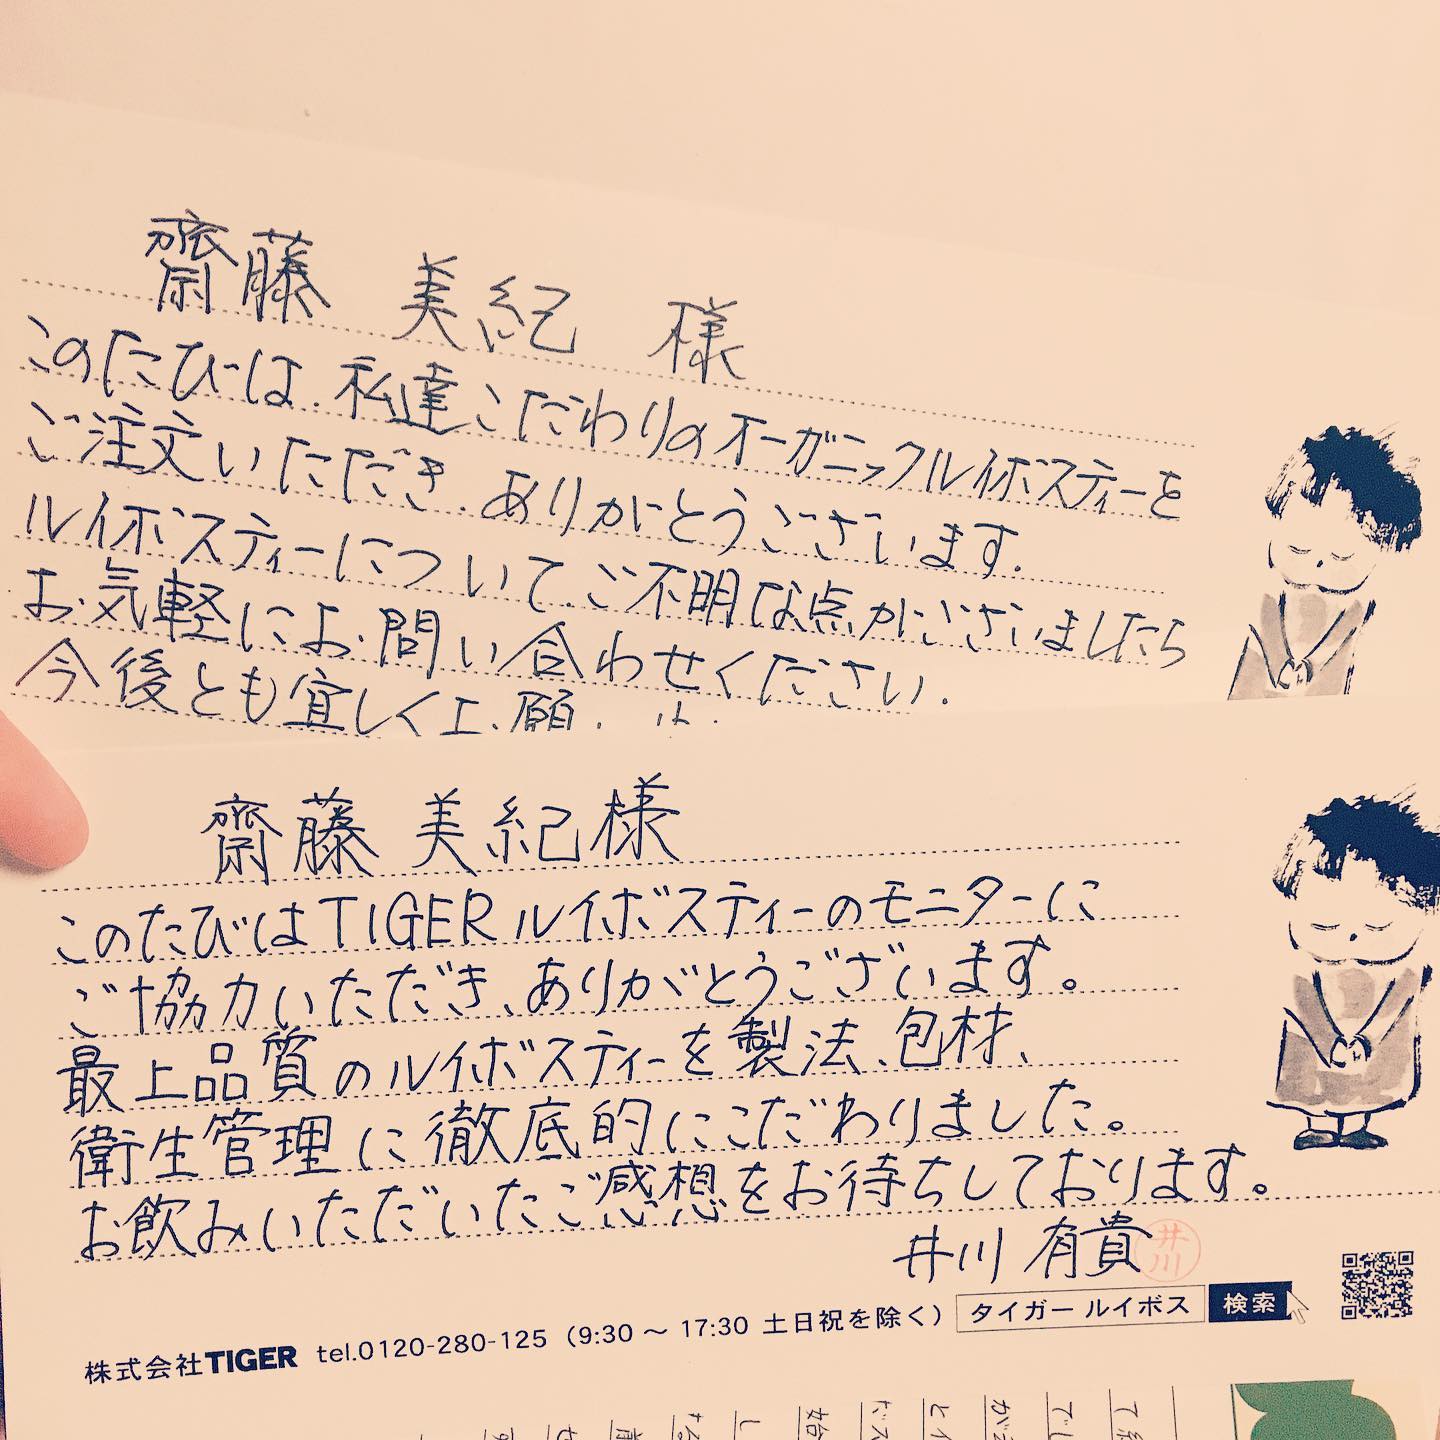 齋藤 美紀 様
このたびは、私達こだわりのオーガニックルイボスティーを
ご注文いただき、ありがとうございます。
ルイボスティーについてご不明な点がございましたら
お気軽にお問い合わせください。
今後とも宜しくお願
齋藤 美紀様
このたびはTIGERルイボスティーのモニターに
ご協力いただき、ありがとうございます。
最上品質のルイボスティーを製法、包材、
衛生管理に徹底的にこだわりました。
お飲みいただいたご感想をお待ちしております。
井川 有貴
井川
タイガー ルイボス 検索
株式会社TIGER tel.0120-280-125 (9:30 ～ 17:30 土日祝を除く)